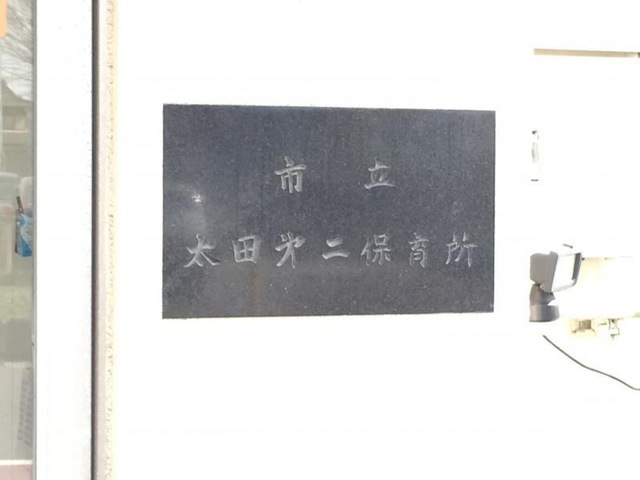 市立
太田第二保育所